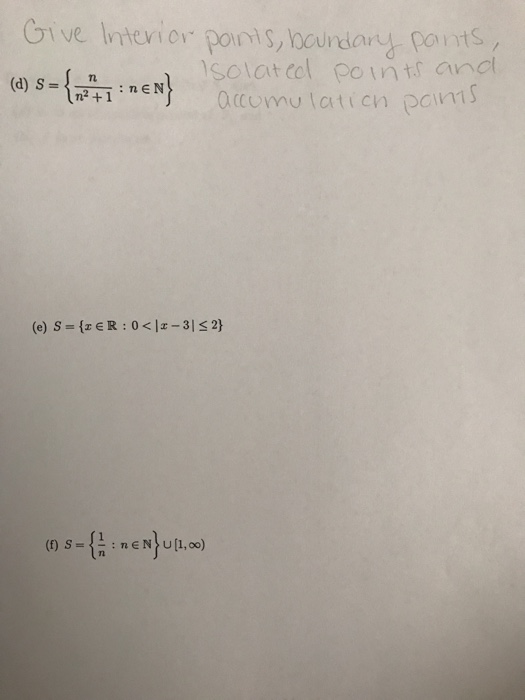 Give Interior points, boundary points,
isolated points and
accumulation points
(d) S = { n / n² + 1 : n ∈ ℕ }
(e) S = {x ∈ ℝ : 0 < |x − 3| ≤ 2}
(f) S = { 1 / n : n ∈ ℕ } ∪ [1, ∞)